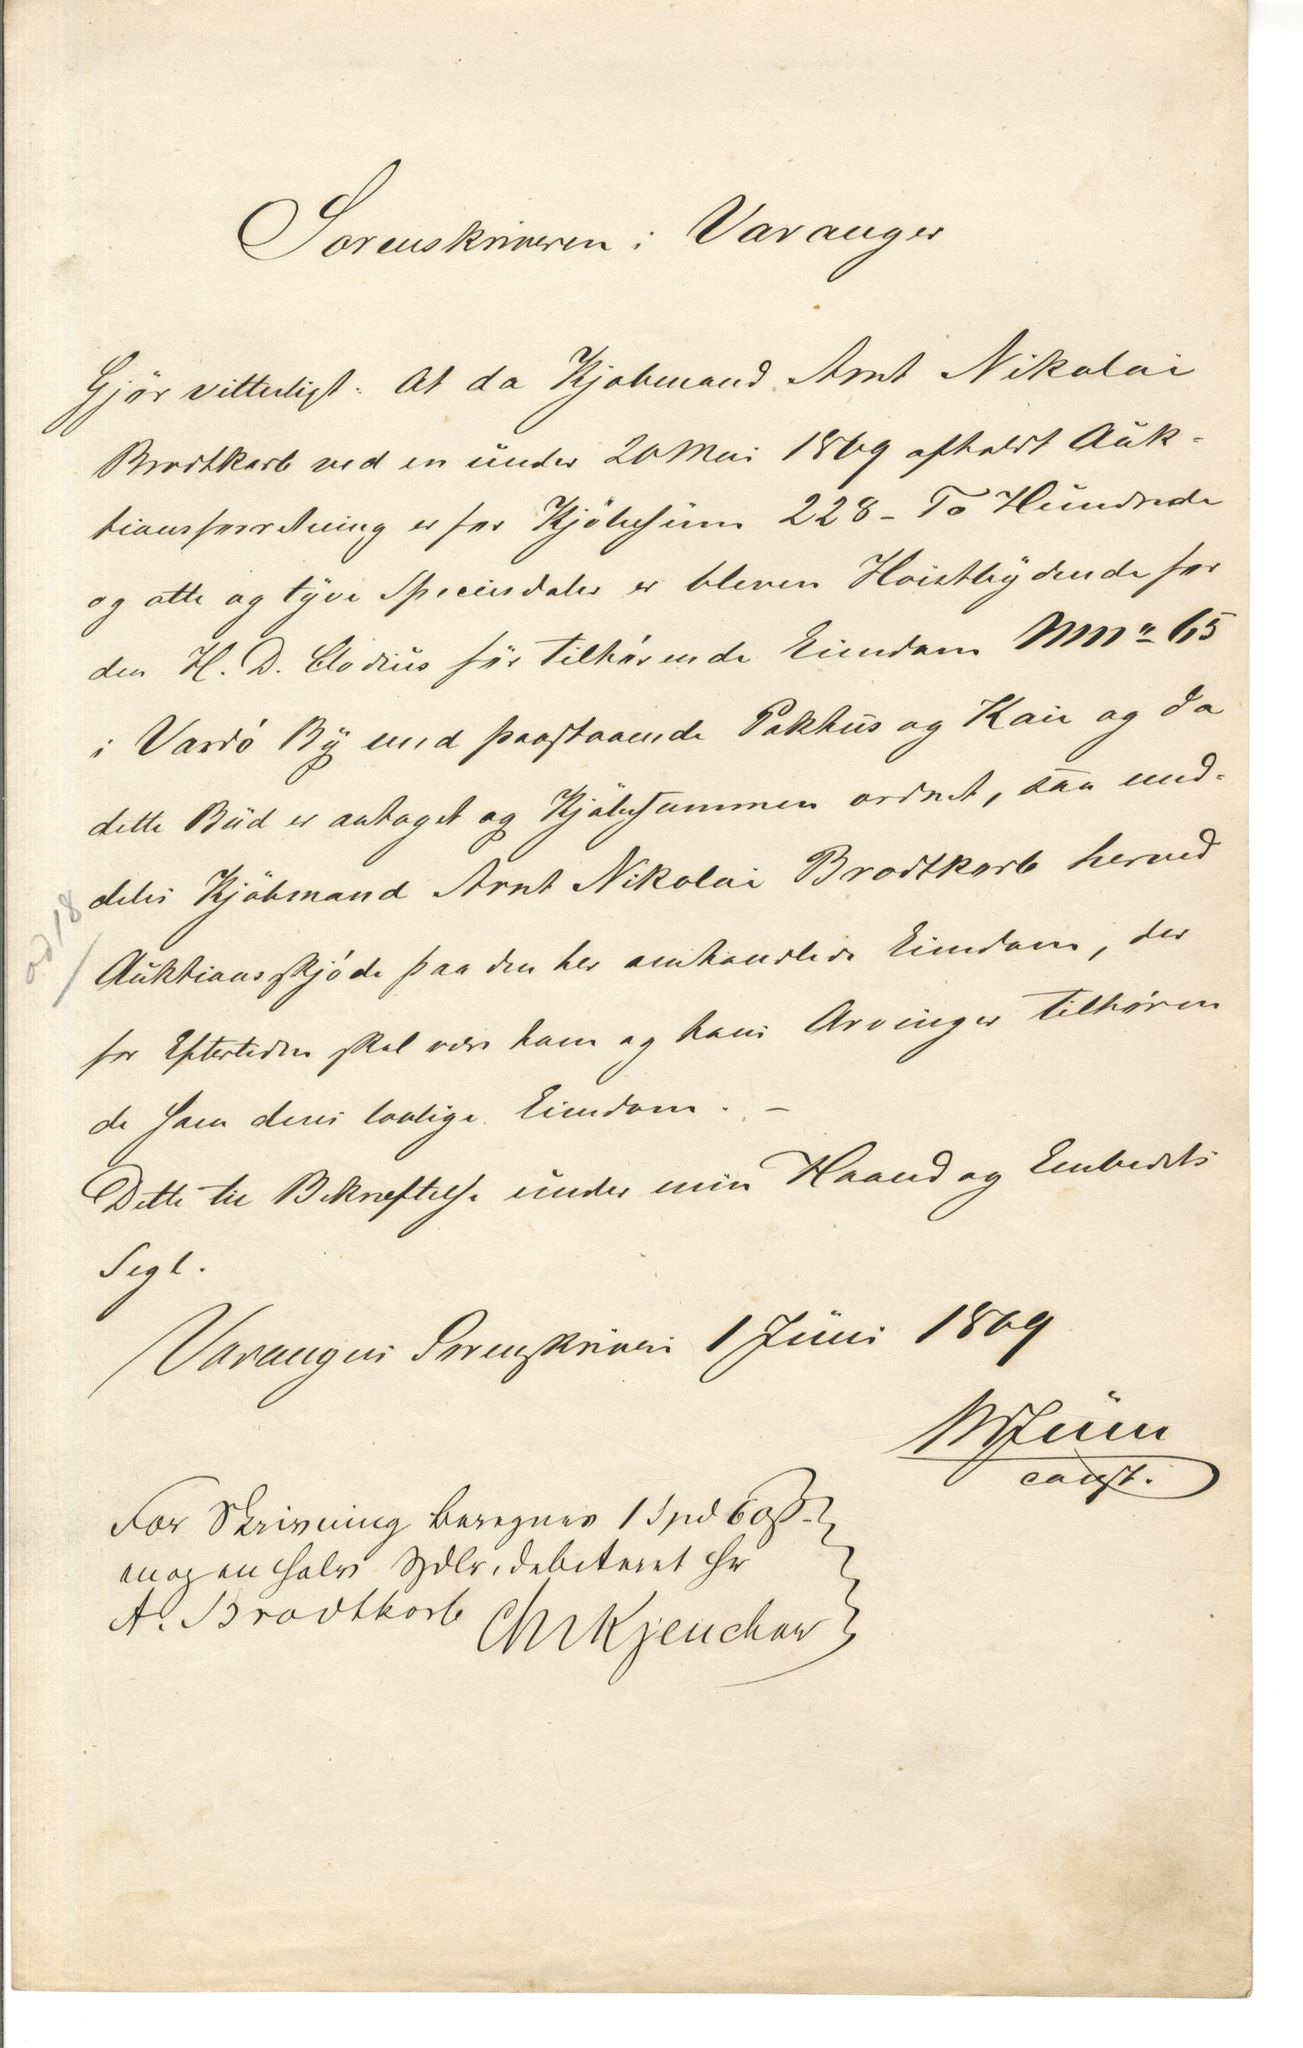 Sorenskriveren i Varanger
Gjør vitterligt: At da Kjøbmand Arnt Nikolai
Brodtkorb ved en under 20 Mai 1869 afholdt Auk-
tionsforretning er for Kjöbesum 228 - To Hundrede
og otte og tyve Speciesdaler er bleven Hoistbydende for
den H. D. Clodius før tilhørende Eiendom MNo 65
i Vardö By med paastaaende Pakhus og Kaie og da
dette Bud er antaget og Kjöbesummen ordnet, saa med-
deles Kjöbmand Arnt Nikolai Brodtkorb herved
Auktionsskjöde paa den her omhandlede Eiendom, der
for Eftertiden skal være ham og hans Arvinger tilhøren
de som deres lovlige Eiendom. -
Dette til Bekræftelse under min Haand og Embedets
Segl.
Varangers Sorenskriveri 1 Juni 1869
const.
For Skrivning beregnes 1 Spd 60 ß -
en og en halv Spdlr, debiteret Hr
A. Brodtkorb
od 18